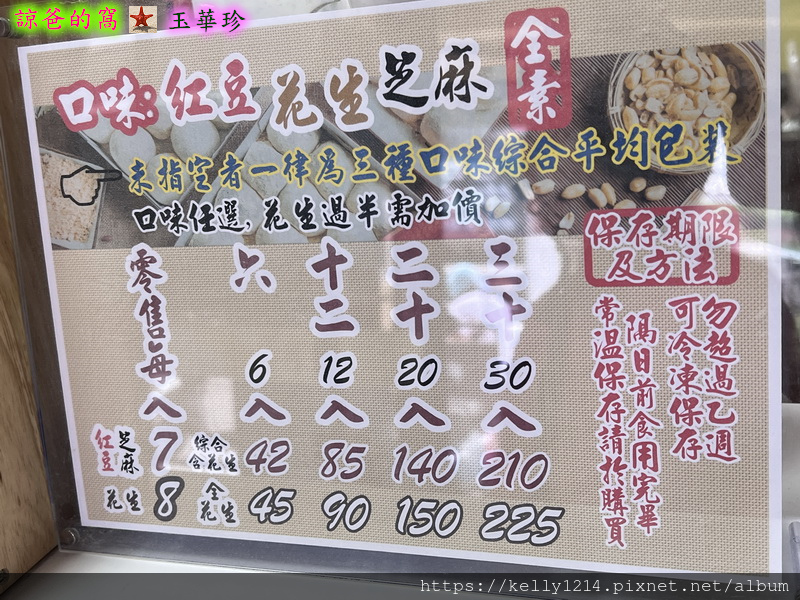 諒爸的窩 玉華珍
口味:紅豆花生芝麻
全素
未指定者一律為三種口味綜合平均包裝
口味任選,花生過半需加價
零售每入
六 6 入
十二 12 入
二十 20 入
三十 30 入
紅豆 芝麻 7
綜合含花生 42 85 140 210
花生 8
全花生 45 90 150 225
保存期限
及方法
常溫保存請於購買
隔日前食用完畢
可冷凍保存
勿超過乙週
https://kelly1214.pixnet.net/album